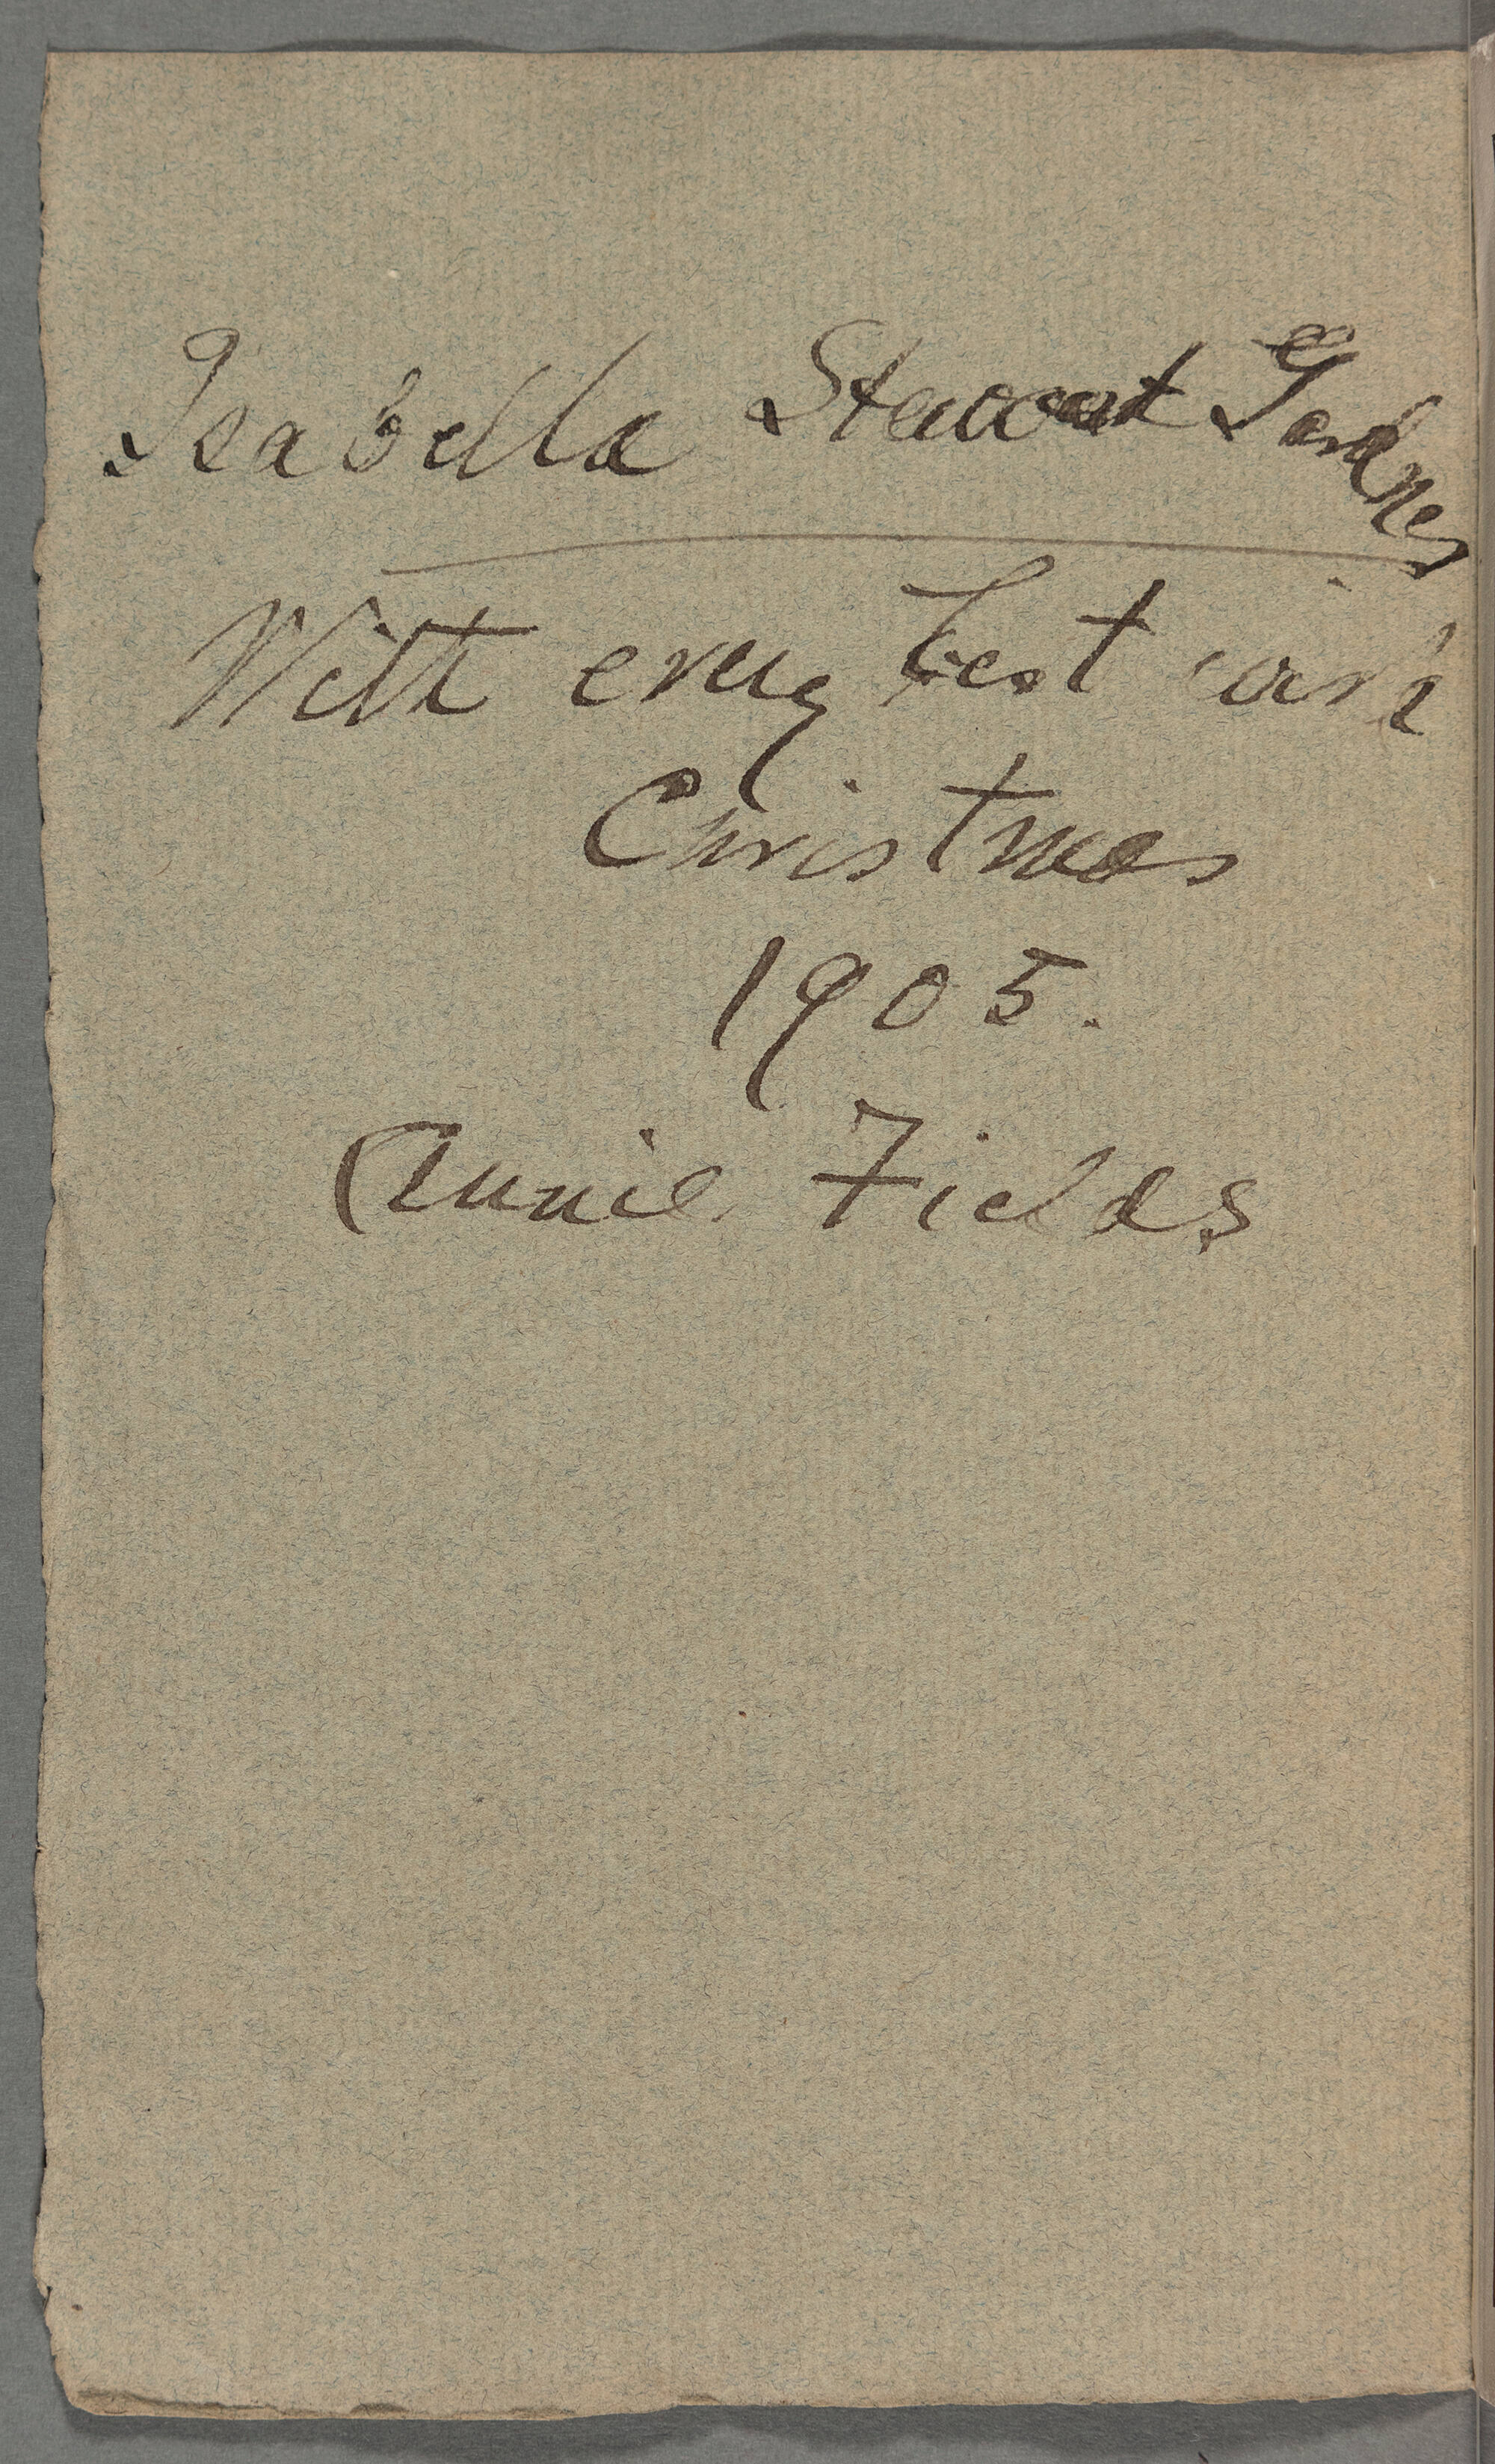 Isabella Stewart Gardner
With every best wish
Christmas
1905.
Annie Fields